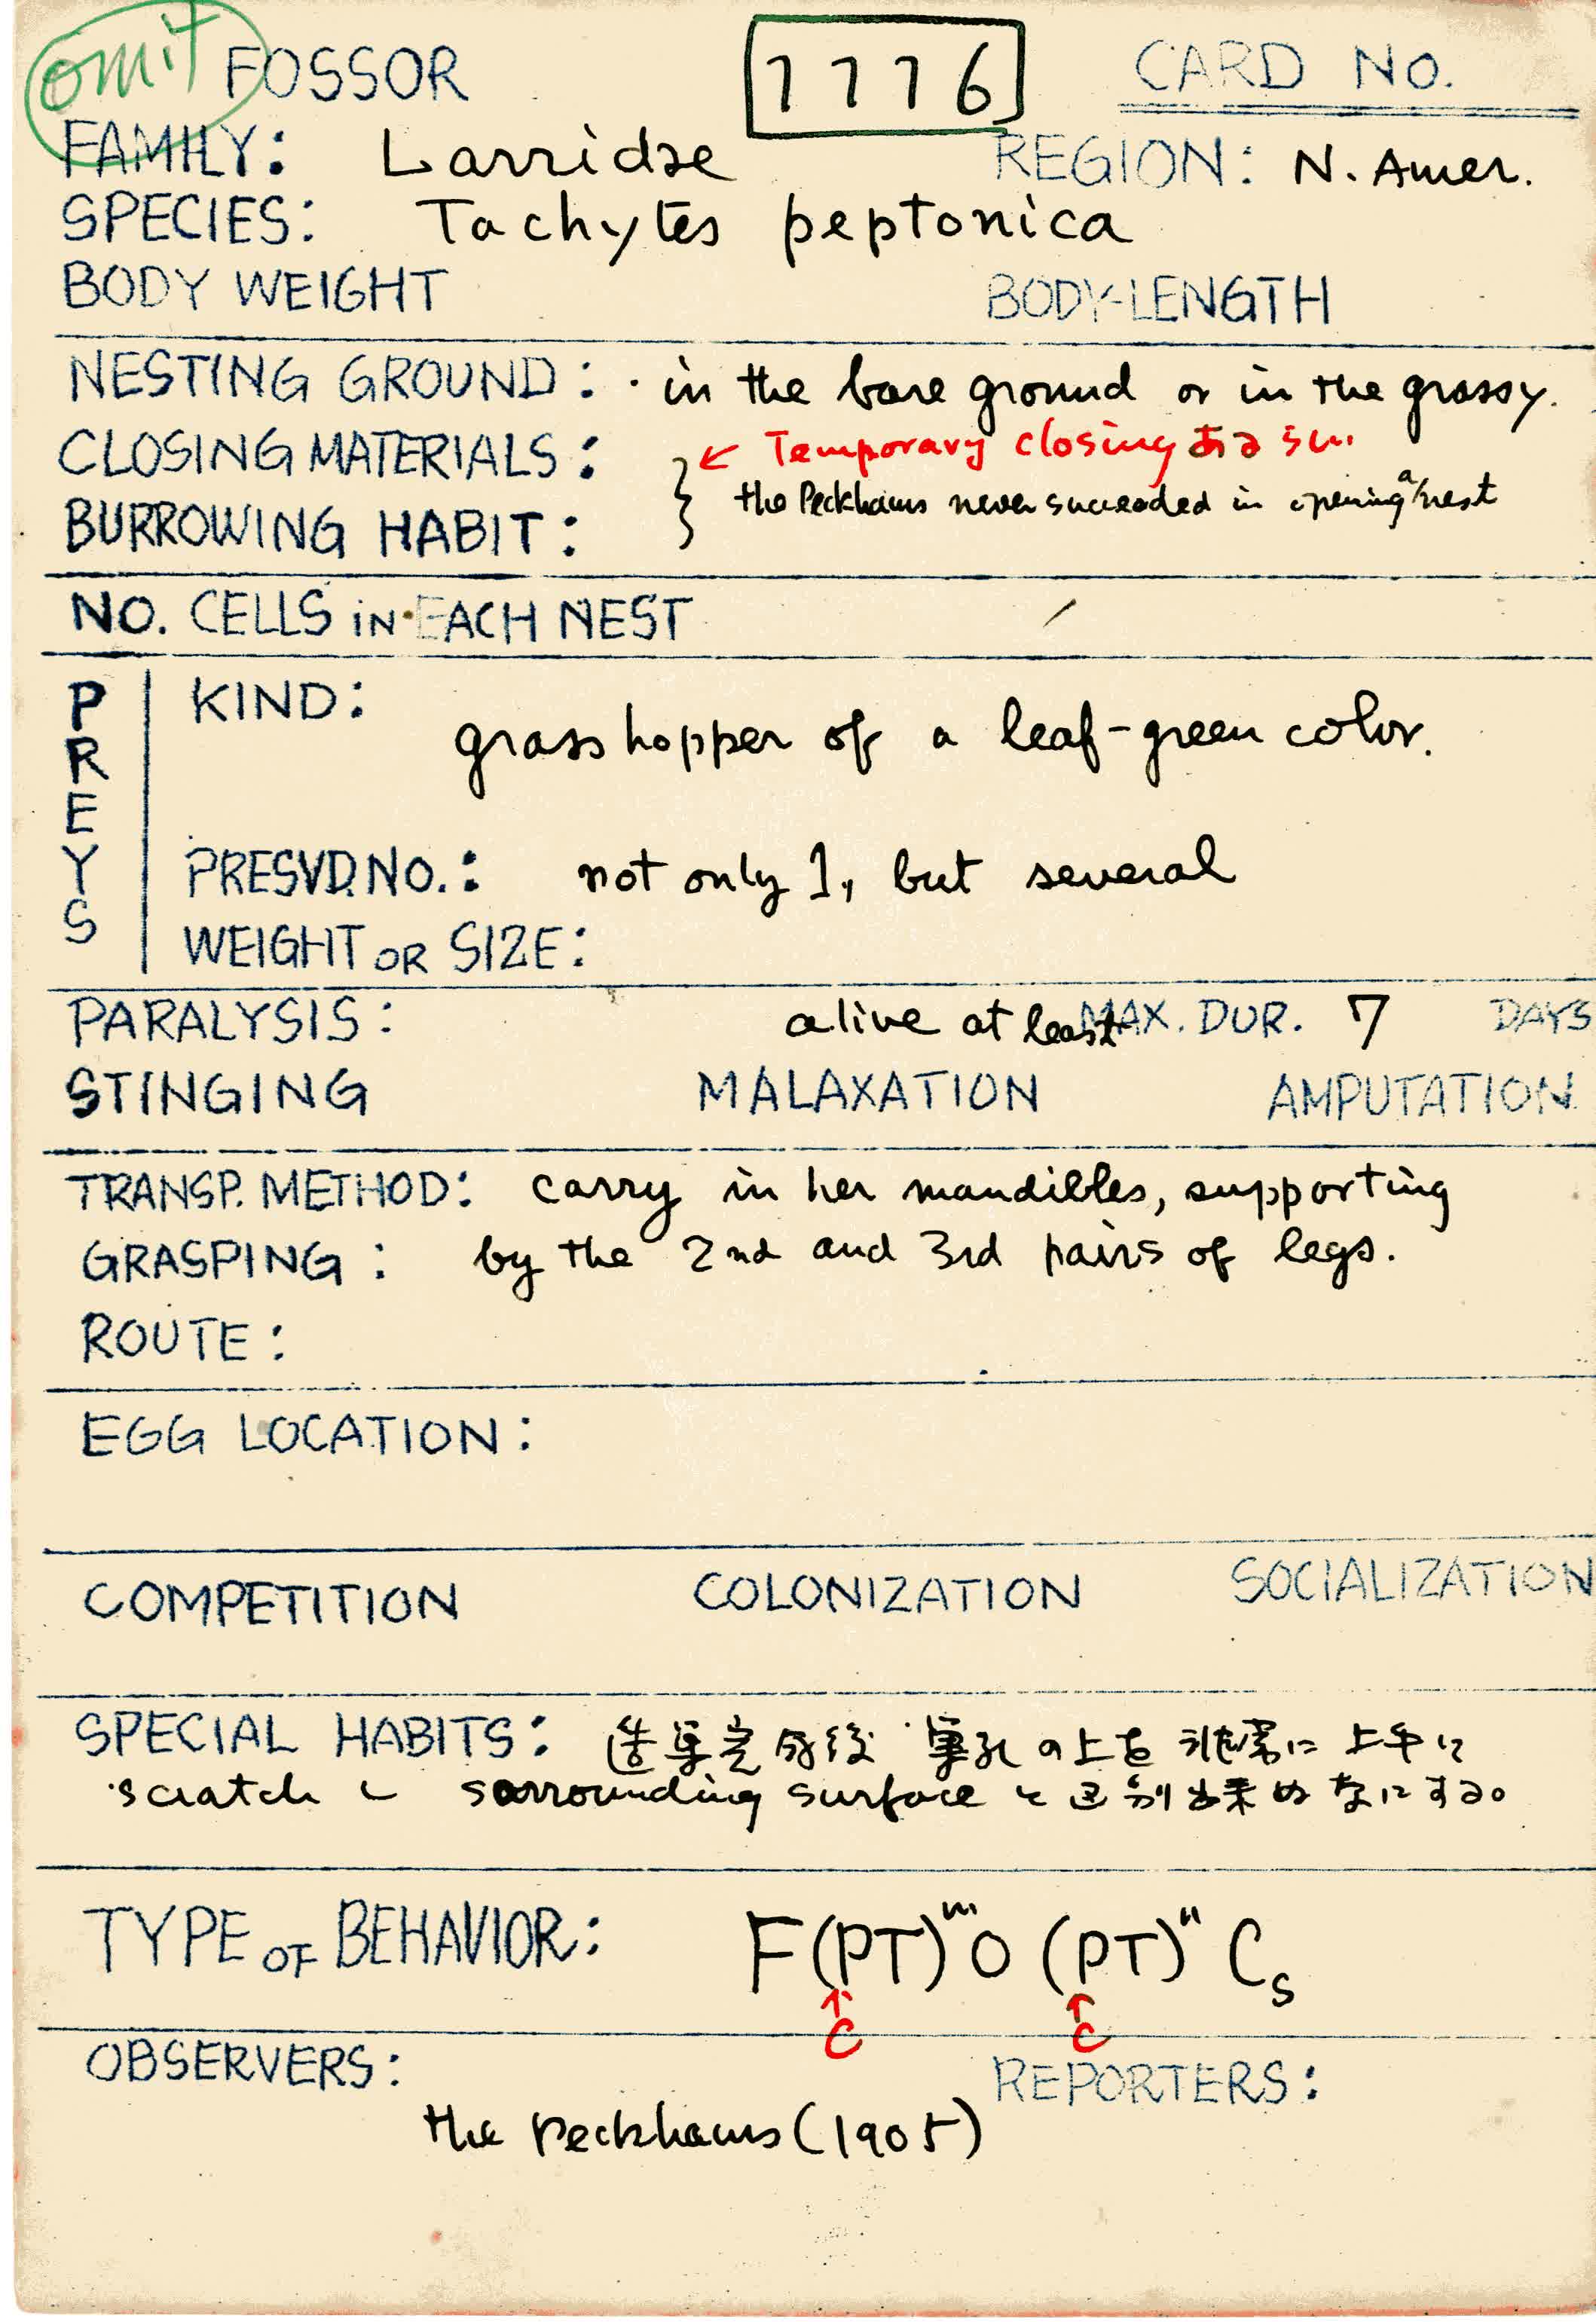 omit FOSSOR 1776 CARD NO.
FAMILY: Larridae REGION: N. Amer.
SPECIES: Tachytes peptonica
BODY WEIGHT BODY-LENGTH
NESTING GROUND: · in the bare ground or in the grassy.
CLOSING MATERIALS: ← Temporary closing ある
the Peckhams never succeeded in opening a nest
BURROWING HABIT:
NO. CELLS iN EACH NEST
PREYS
KIND: grasshopper of a leaf-green color.
PRESVD. NO.: not only 1, but several
WEIGHT OR SIZE:
PARALYSIS: alive at least MAX. DUR. 7 DAYS
STINGING MALAXATION AMPUTATION
TRANSP. METHOD: carry in her mandibles, supporting
GRASPING: by the 2nd and 3rd pairs of legs.
ROUTE:
EGG LOCATION:
COMPETITION COLONIZATION SOCIALIZATION
SPECIAL HABITS: 造巣完成後 巣孔の上を非常に上手に
scratch し sorrounding surface と区別出来ぬ な にする。
TYPE OF BEHAVIOR: F(PT)ᵐO (PT)ⁿ Cs
↑ ↑
C C
OBSERVERS: REPORTERS:
the Peckhams (1905)